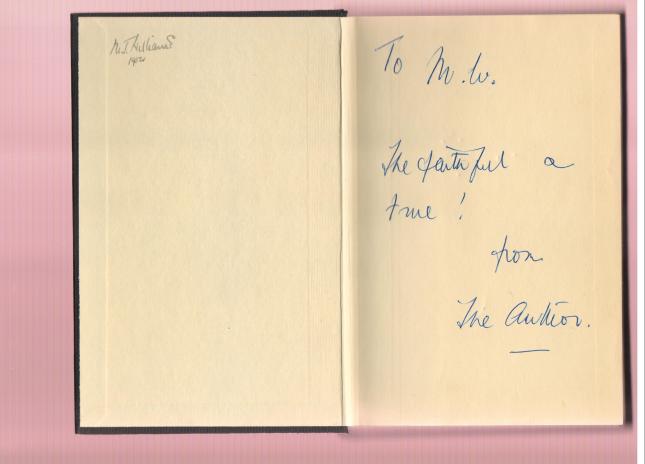 M.J. Williams
To M.W.
The faithful a
true!
from
The Author.